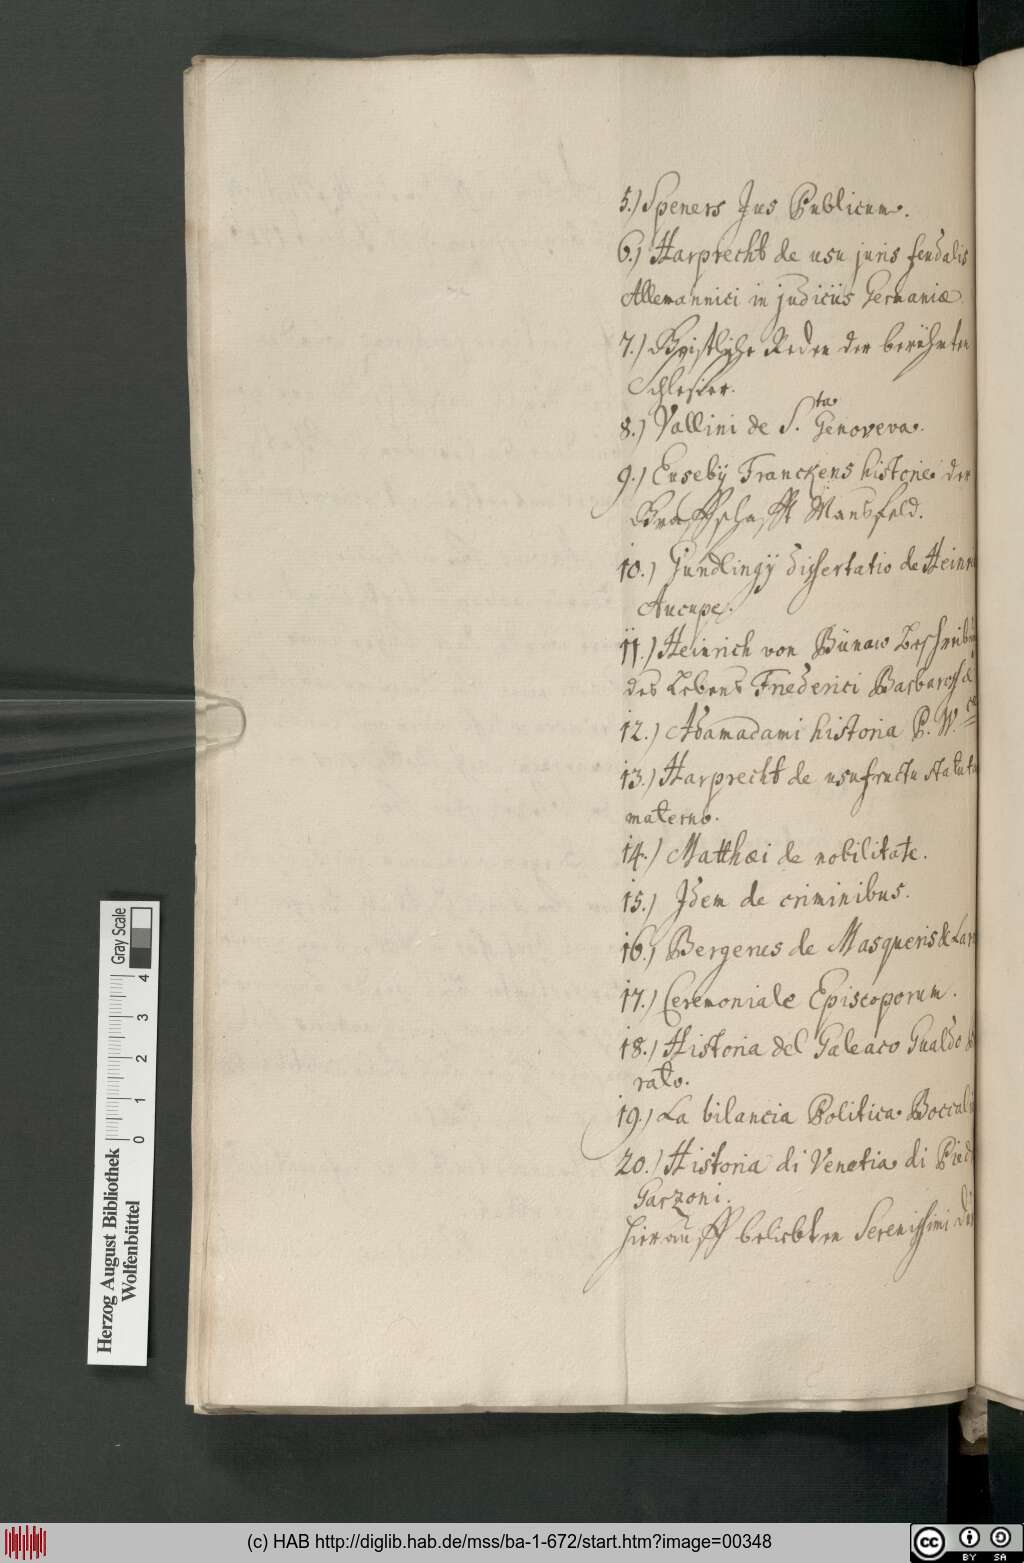 5.) Speners Jus Publicum.
6.) Harprecht de usu juris feudalis
Allemannici in judiciis Germaniæ.
7.) Geistliche Reden der berühmten
Schlesier.
8.) Vallini de S.ta Genoveva.
9.) Euseby Franckens historie der
Graffschafft Mansfeld.
10.) Gundlingij dissertatio de Heinri
Aucupe.
11.) Heinrich von Bünaw Beschreib
des Lebens Friederici Barbarossæ
12.) Adamadami historia P. W.
13.) Harprecht de usufructu statut
materno.
14.) Matthæi de nobilitate.
15.) Idem de criminibus.
16.) Bergerus de Masqueris & Lar
17.) Ceremoniale Episcoporum.
18.) Historia del Galeaco Gualdo
rato.
19.) La bilancia Politica Boccali
20.) Historia di Venetia di
Garzoni.
hierauff beliebten Serenissimi
Herzog August Bibliothek
Wolfenbüttel
0 1 2 3 4
Gray Scale
(c) HAB http://diglib.hab.de/mss/ba-1-672/start.htm?image=00348
cc BY SA